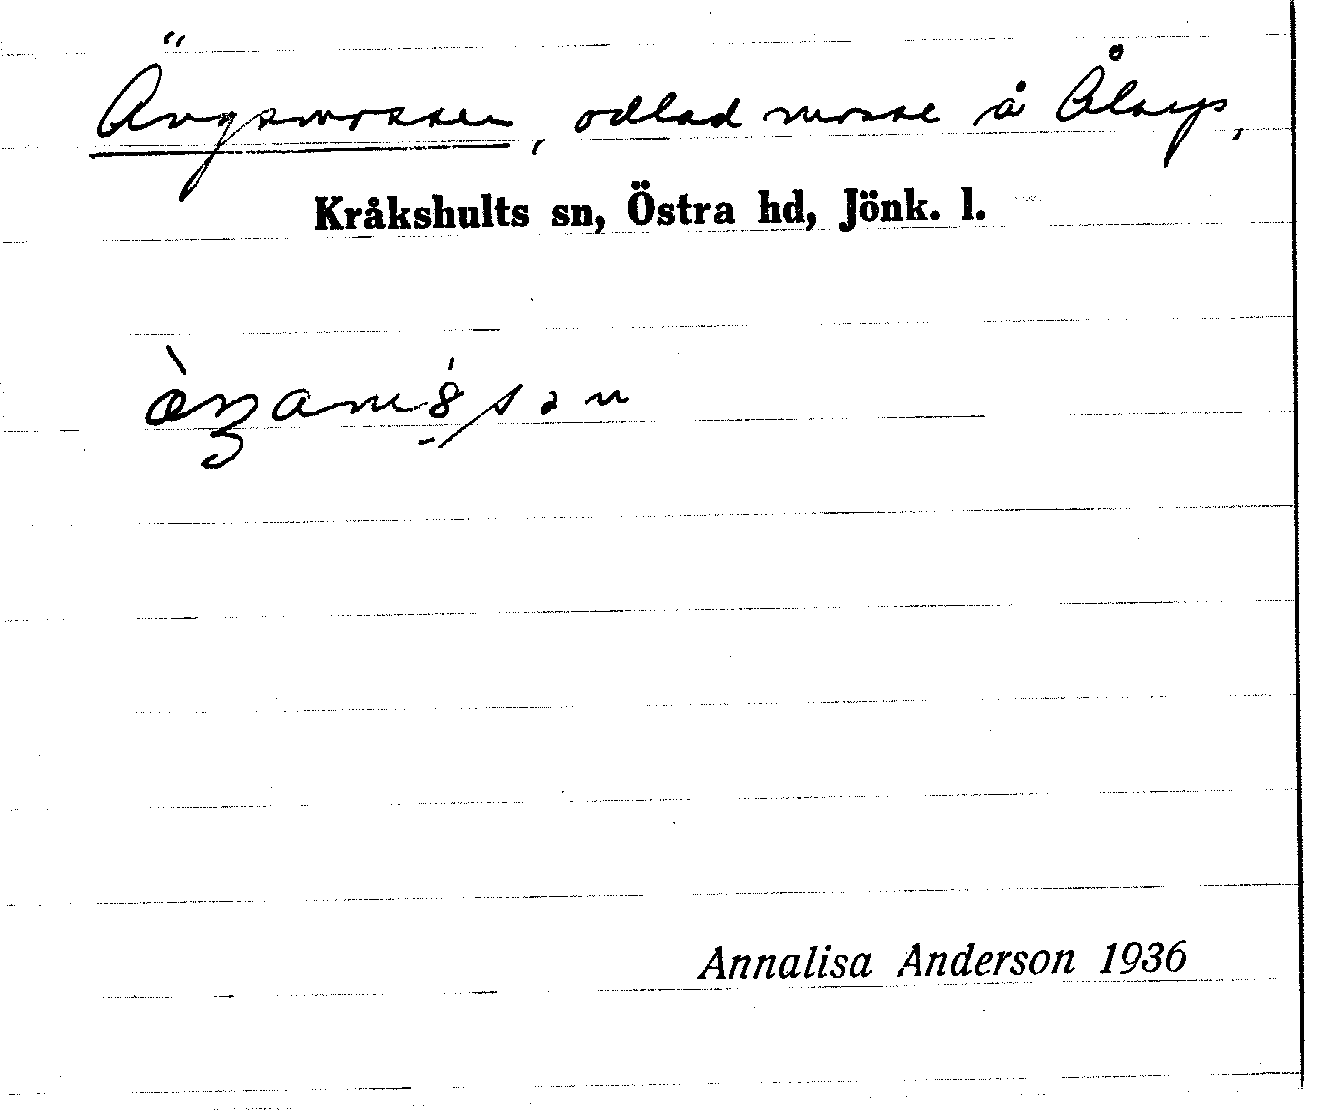 Ängsmossen, odlad mosse å Ålarp,
Kråkshults sn, Östra hd, Jönk. l.
Annalisa Anderson 1936